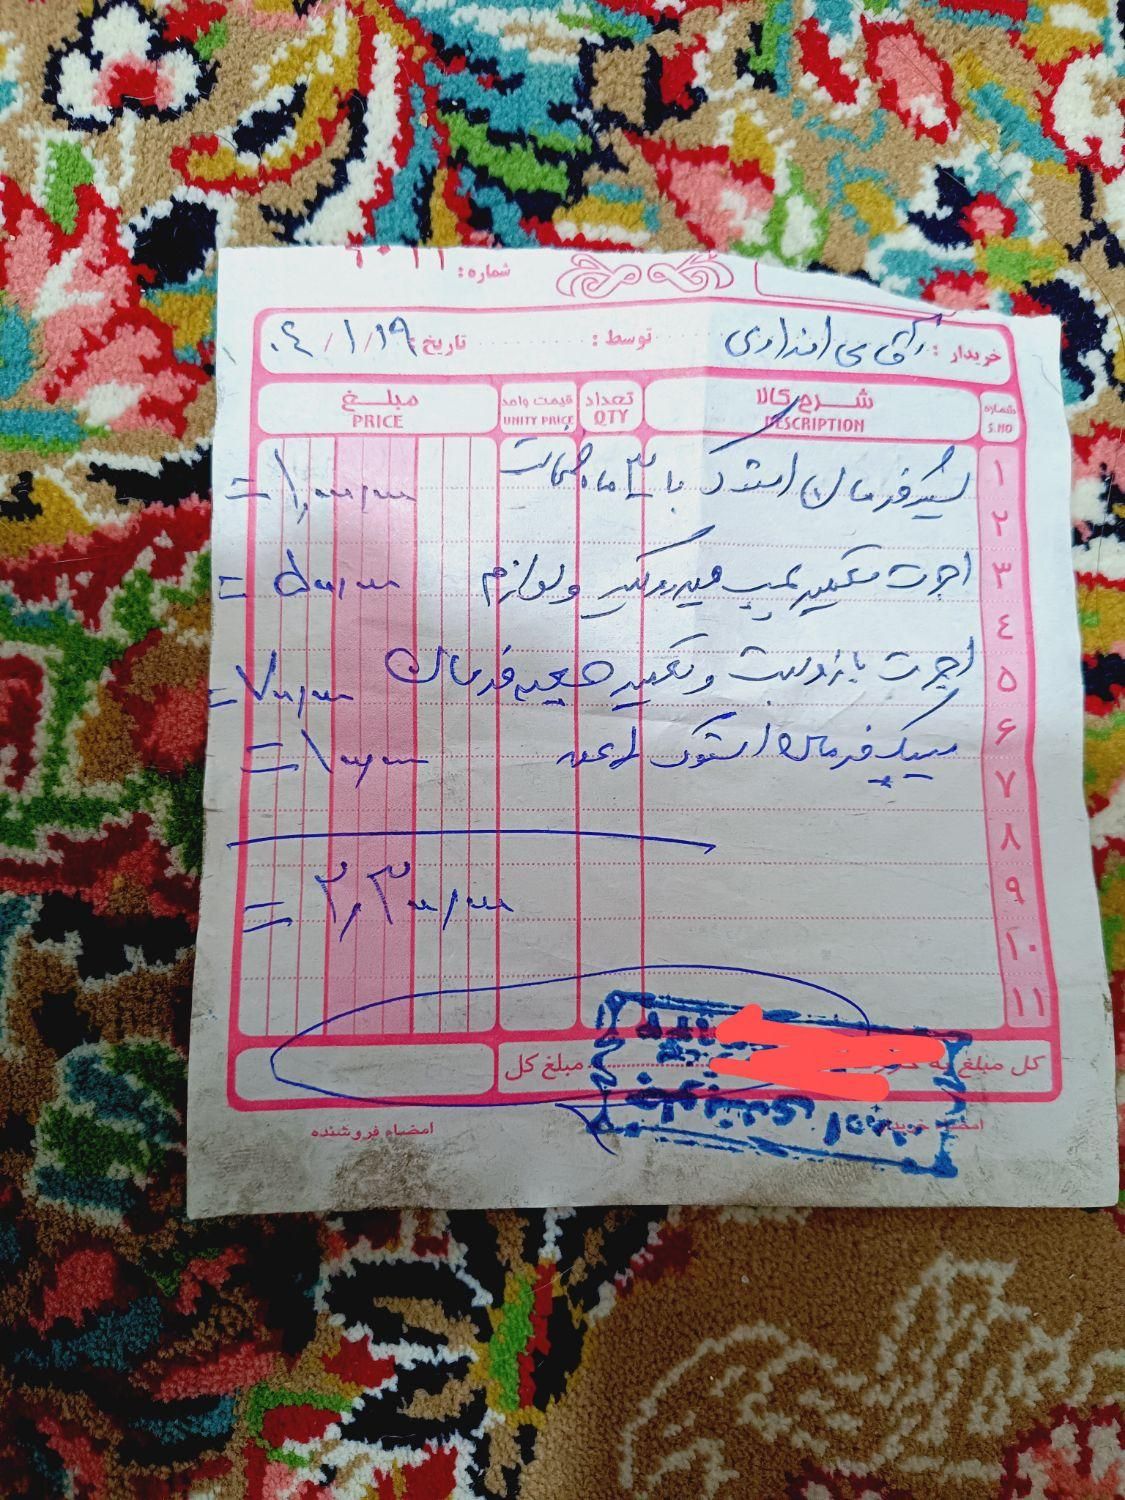 شماره: ۱۰۲۱
خریدار: آقای امدادی توسط: تاریخ: ۰۴/۱/۱۹
شماره S.NO شرح کالا DESCRIPTION تعداد QTY قیمت واحد UNITY PRICE مبلغ PRICE
۱ شیر فرمان استوک با ۳ ماه ضمانت = ۱,۰۰۰,۰۰۰
۲
۳ اجرت تعمیر پمپ هیدرولیک و لوازم = ۵۰۰,۰۰۰
۴
۵ اجرت باز و بست و تعمیر جعبه فرمان = ۷۰۰,۰۰۰
۶ سیبک فرمان استوک = ۱۰۰,۰۰۰
۷
۸
۹ = ۲,۳۰۰,۰۰۰
۱۰
۱۱
کل مبلغ به مبلغ کل
جلوبندی
امضاء خریدار امضاء فروشنده